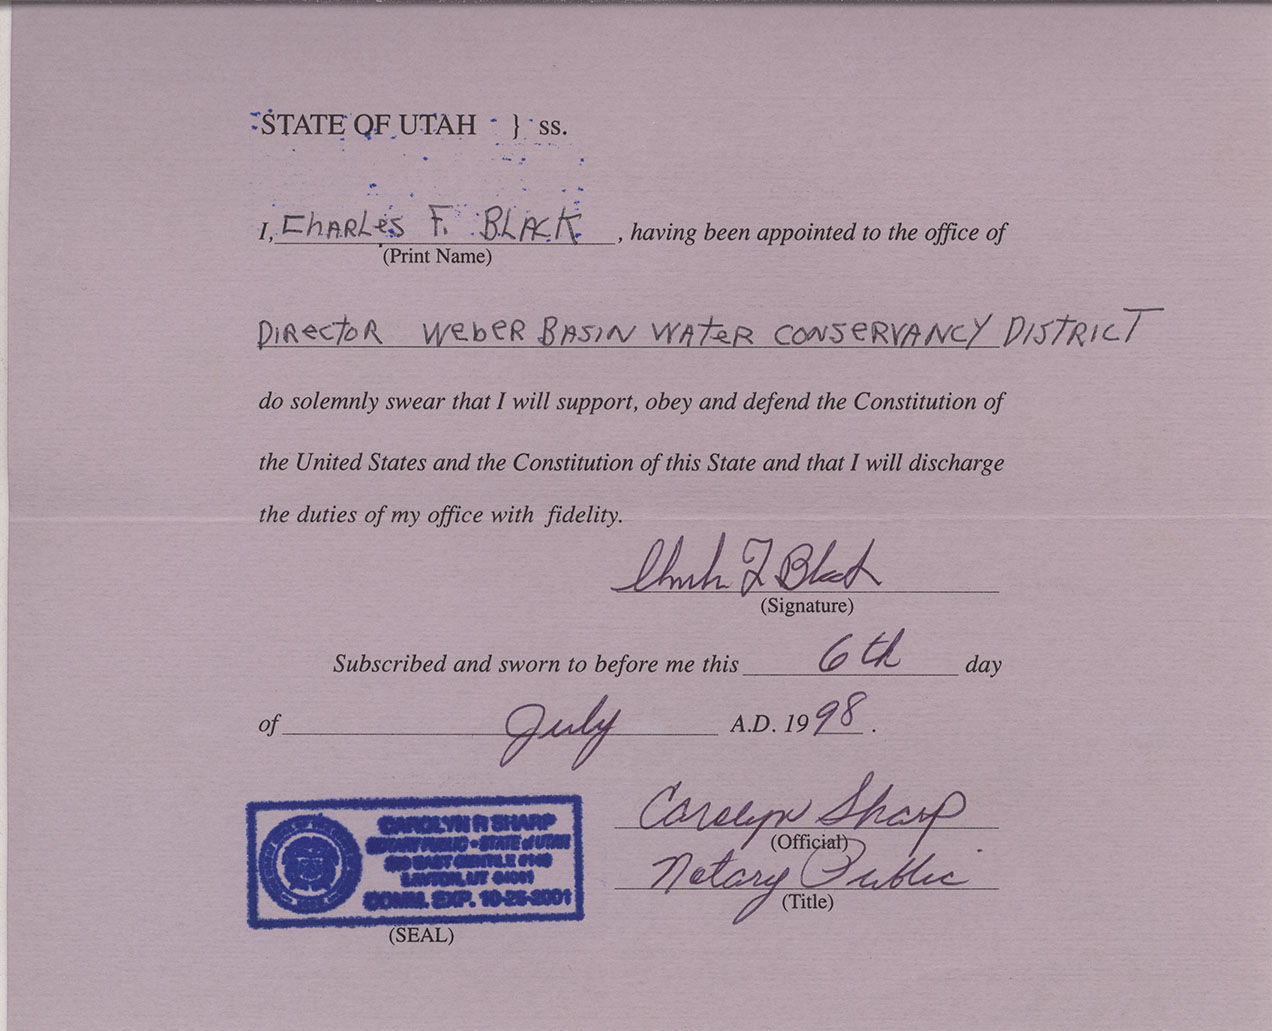 STATE OF UTAH } ss.
I, CHARLes F. BLACK, having been appointed to the office of
(Print Name)
DIRectoR WebeR BASIN WAteR CONSeRVANCY DISTRICT
do solemnly swear that I will support, obey and defend the Constitution of
the United States and the Constitution of this State and that I will discharge
the duties of my office with fidelity.
Charles F Black
(Signature)
Subscribed and sworn to before me this 6th day
of July A.D. 1998.
CAROLYN R SHARP
NOTARY PUBLIC • STATE of UTAH
EAST GENTILE
LAYTON, UT 84041
COMM. EXP. 10-25-2001
(SEAL)
Carolyn Sharp
(Official)
Notary Public
(Title)